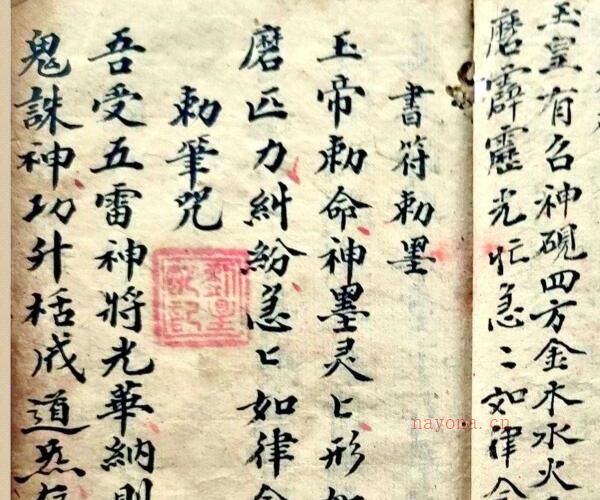 玉皇有召神硯四方金木水火
磨霹靂光忙急〻如律令
書符勅墨
玉帝勅命神墨灵〻形如
磨匹力糾紛急〻如律令
勅筆咒
吾受五雷神將光華納則
鬼誅神功升恬成道炁存
nayona.cn